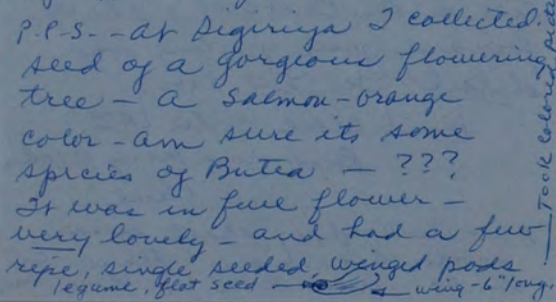 P.P.S. - at Sigiriya I collected
seed of a gorgious flowering
tree - a salmon-orange
color - am sure its some
species of Butea - ???
It was in full flower -
very lovely - and had a few
ripe, single seeded, winged pods
legume, flat seed wing - 6" long.
Took colored